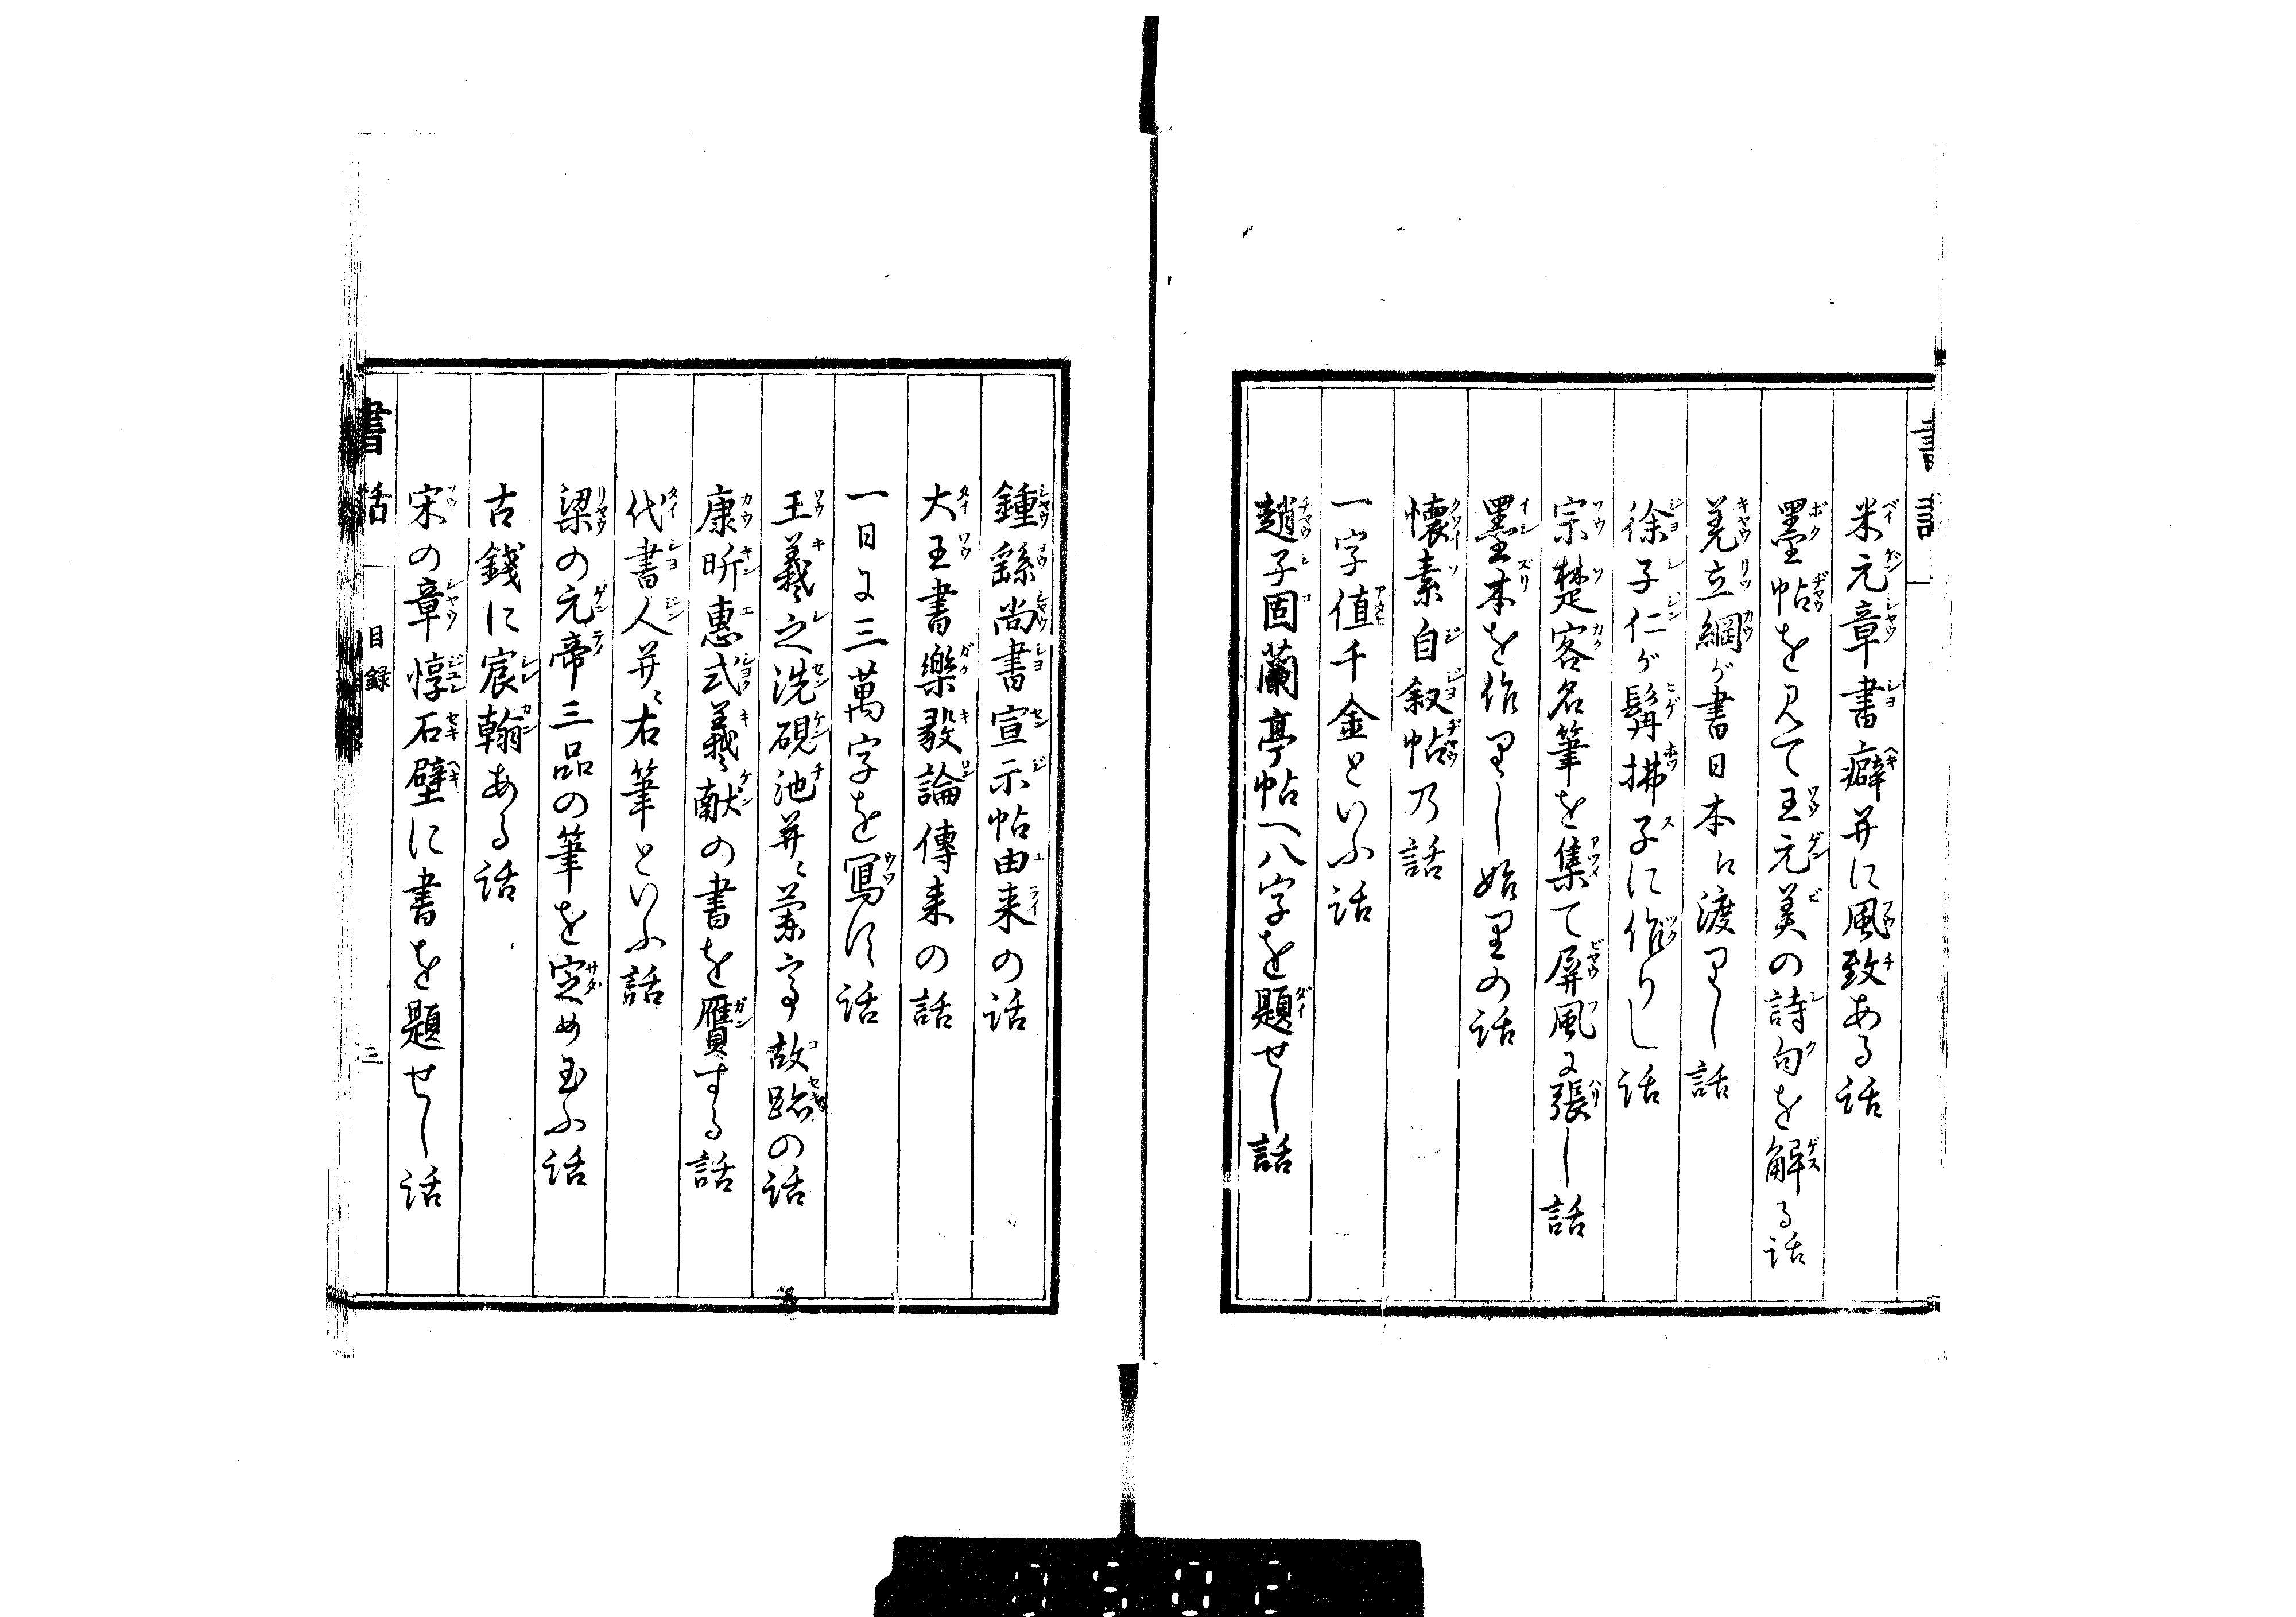 米元章書癖并に風致ある話
墨帖を見て王元美の詩句を解る話
羌立綱が書日本に渡りし話
徐子仁が髯拂子に作りし話
宗楚客名筆を集て屏風に張し話
墨本を作りし始りの話
懐素自叙帖乃話
一字値千金といふ話
趙子固蘭亭帖へ八字を題せし話
鍾繇尚書宣示帖由来の話
大王書樂毅論傳来の話
一日に三萬字を寫す話
王羲之洗硯池并蘭亭故跡の話
康昕惠式羲献の書を贋する話
代書人并右筆といふ話
梁の元帝三品の筆を定め玉ふ話
古錢に宸翰ある話
宋の章惇石壁に書を題せし話
書話一 目録 三